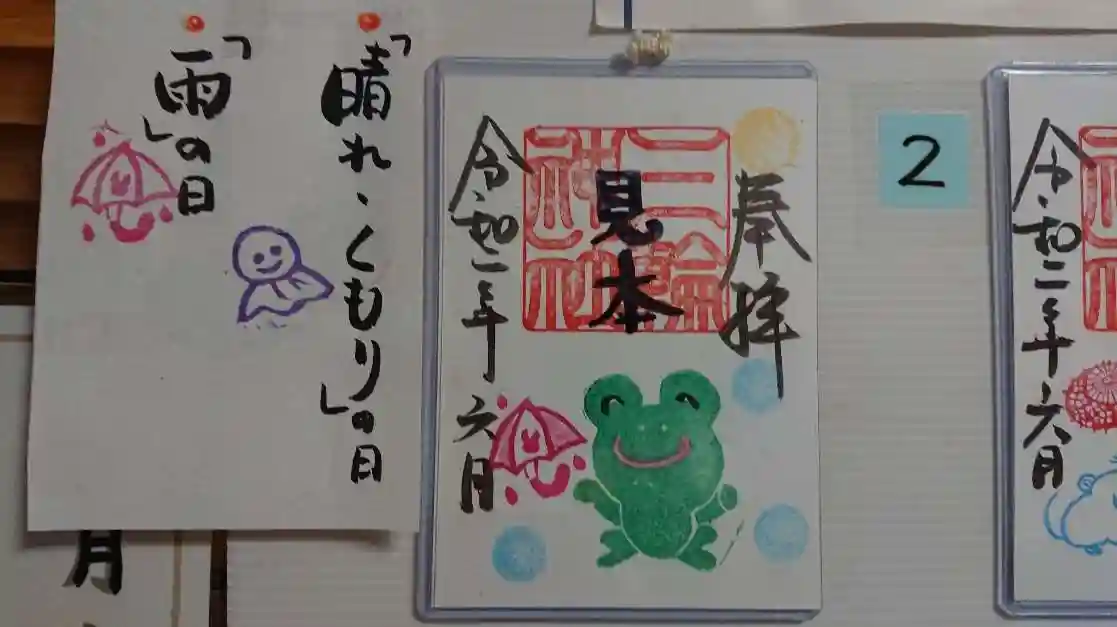 「晴れ・くもり」の日
「雨」の日
奉拝
三輪神社
見本
令和二年六月
2
令和二年六月
月